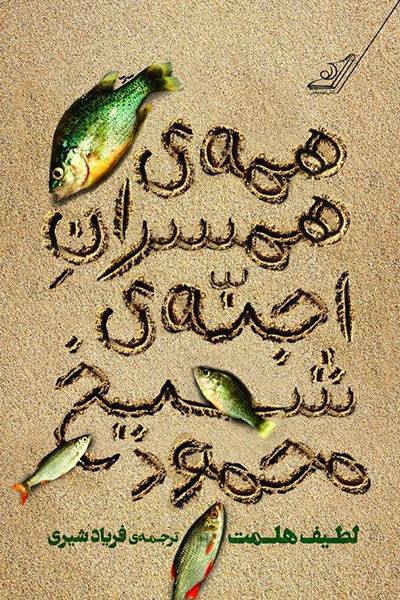 همه‌ی
همسرانِ
اجنّه‌ی
شیخ
محمودند
لطیف هلمت ترجمه‌ی فریاد شیری